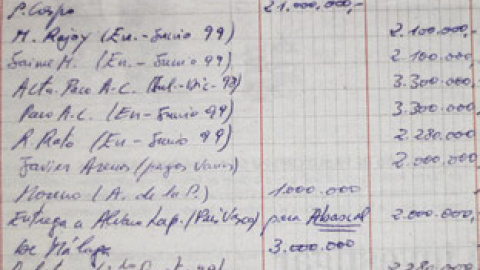 P. Crespo 21.000.000,-
M. Rajoy (En.-Junio 99) 2.100.000,-
Jaime M. (En.- Junio 99) 2.100.000,-
Acta. Paco A.C. (Jul.-Dic-98) 3.300.000,-
Paco A.C. (En-Junio 99) 3.300.000
R. Rato (En-Junio 99) 2.280.000
Javier Arenas (pagos varios) 2.000.000
Moreno (A. de la P.) 1.000.000
Entrega a Alvaro Lap. (País Vasco) para Abascal 2.000.000,-
de Málaga 3.000.000
2.280.000